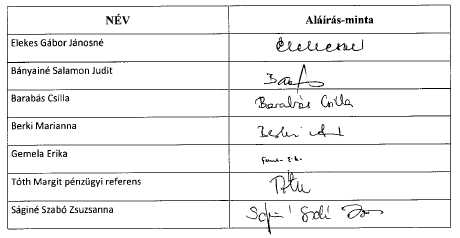 NÉV Aláírás-minta
Elekes Gábor Jánosné
Bányainé Salamon Judit
Barabás Csilla Barabás Csilla
Berki Marianna
Gemela Erika
Tóth Margit pénzügyi referens
Ságiné Szabó Zsuzsanna